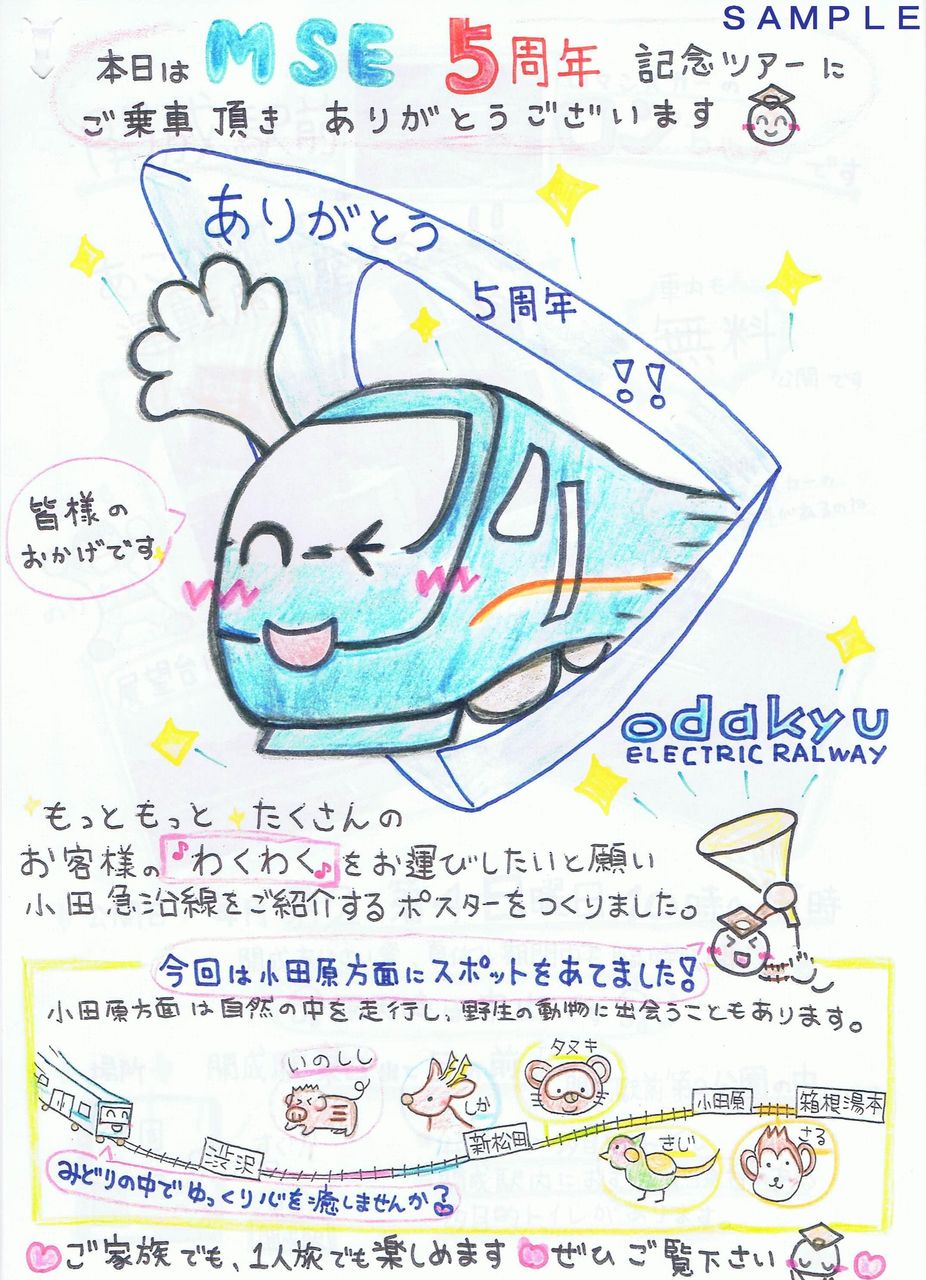 SAMPLE
本日は MSE 5周年 記念ツアーに
ご乗車頂き ありがとうございます
ありがとう
5周年
!!
皆様の
おかげです
odakyu
ELECTRIC RALWAY
もっともっと たくさんの
お客様の♪わくわく♪をお運びしたいと願い
小田急沿線をご紹介するポスターをつくりました。
今回は小田原方面にスポットをあてました!
小田原方面は自然の中を走行し、野生の動物に出会うこともあります。
いのしし
しか
タヌキ
小田原
箱根湯本
新松田
渋沢
きじ
さる
みどりの中でゆっくり心を癒しませんか?
ご家族でも、1人旅でも楽しめます ぜひご覧下さい